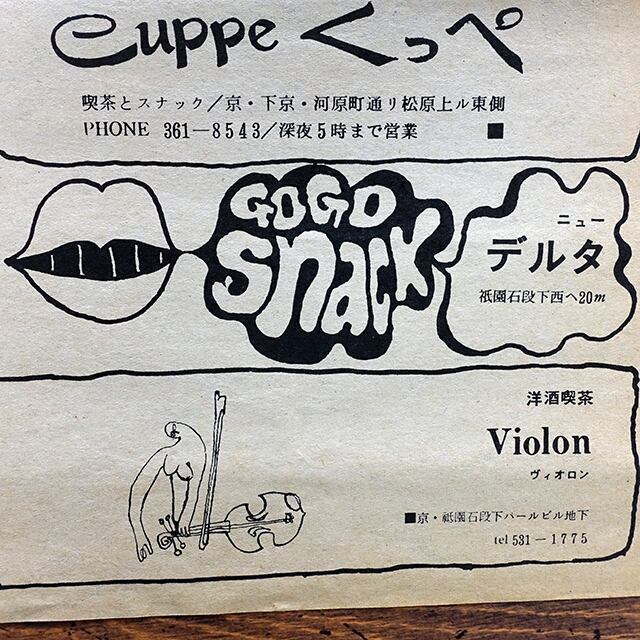 Cuppe くっぺ
喫茶とスナック/京・下京・河原町通リ松原上ル東側
PHONE 361—8543/深夜5時まで営業
GOGO
snack
ニュー
デルタ
祇園石段下西へ20m
洋酒喫茶
Violon
ヴィオロン
■京・祇園石段下パールビル地下
tel 531—1775